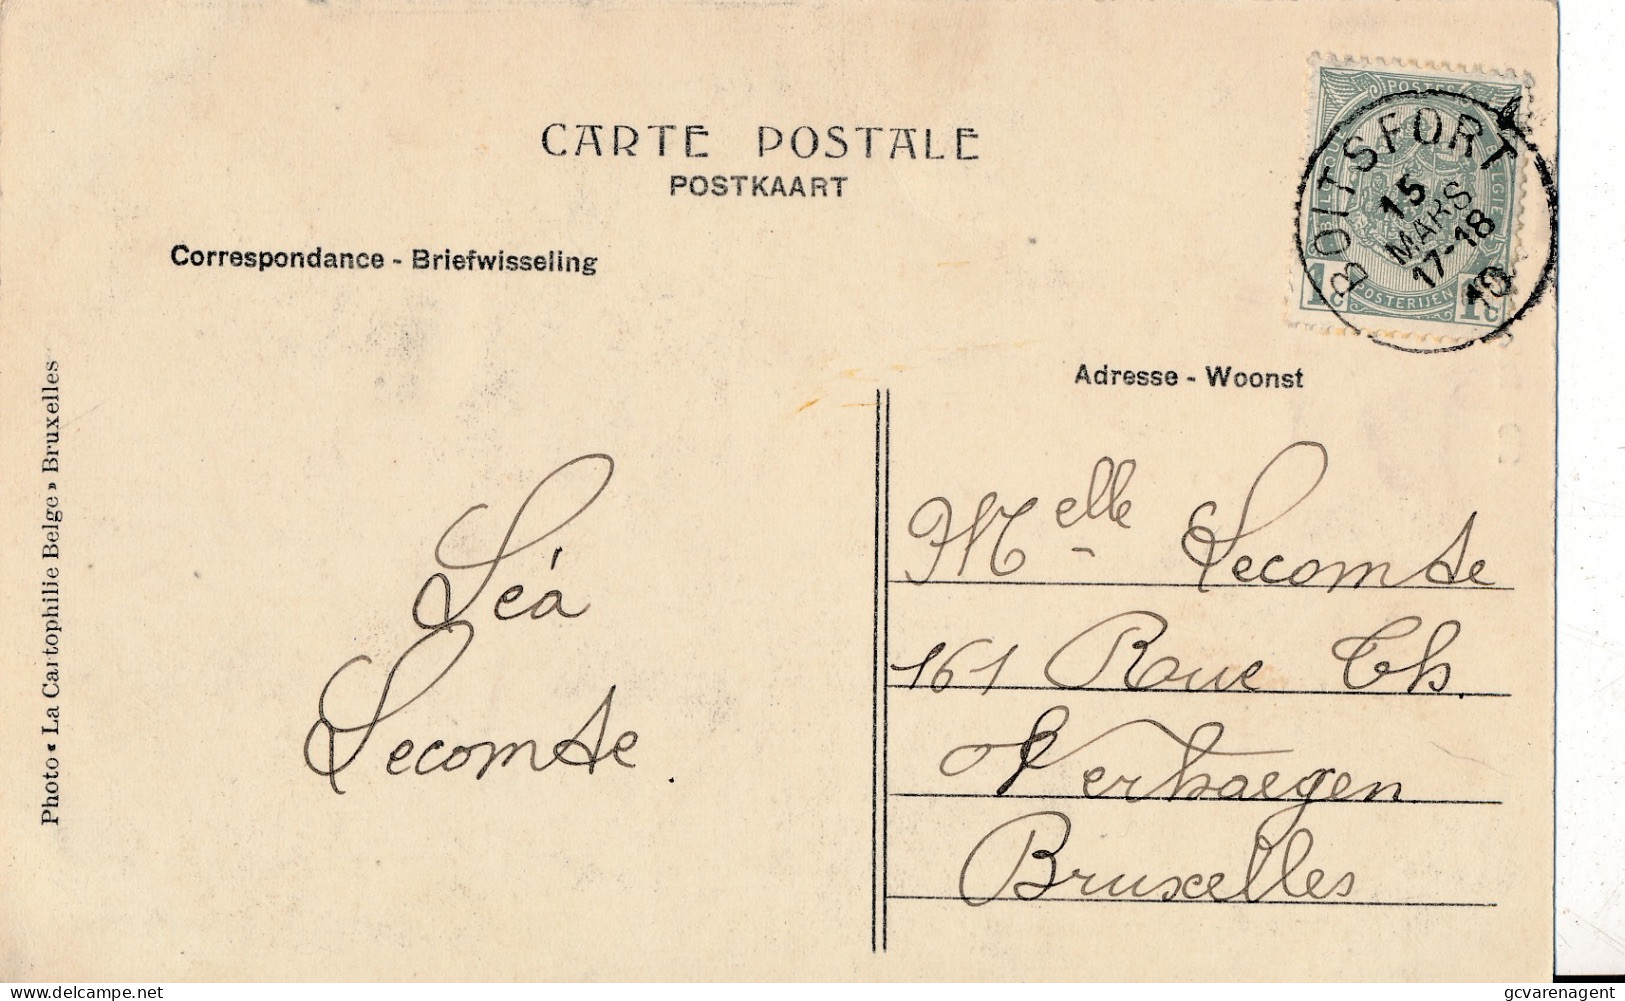 CARTE POSTALE
POSTKAART
Correspondance - Briefwisseling
BOITSFORT
15
MARS
17-18
10
POSTERIJEN
1c 1c
Adresse - Woonst
Photo « La Cartophilie Belge » Bruxelles
Léa
Lecomte.
Melle Lecomte
161 Rue Th.
Verhaegen
Bruxelles
delcampe.net
gcvarenagent